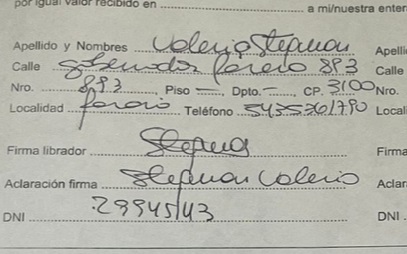 por igual valor recibido en a mi/nuestra enter
Apellido y Nombres Valerio Stegman Apelli
Calle Gobernador Parera 893 Calle
Nro. 893, Piso — Dpto. —, CP. 3100 Nro.
Localidad Teléfono Locali
Firma librador Stegman Firma
Aclaración firma Stegman Valerio Aclar
DNI 29945143 DNI